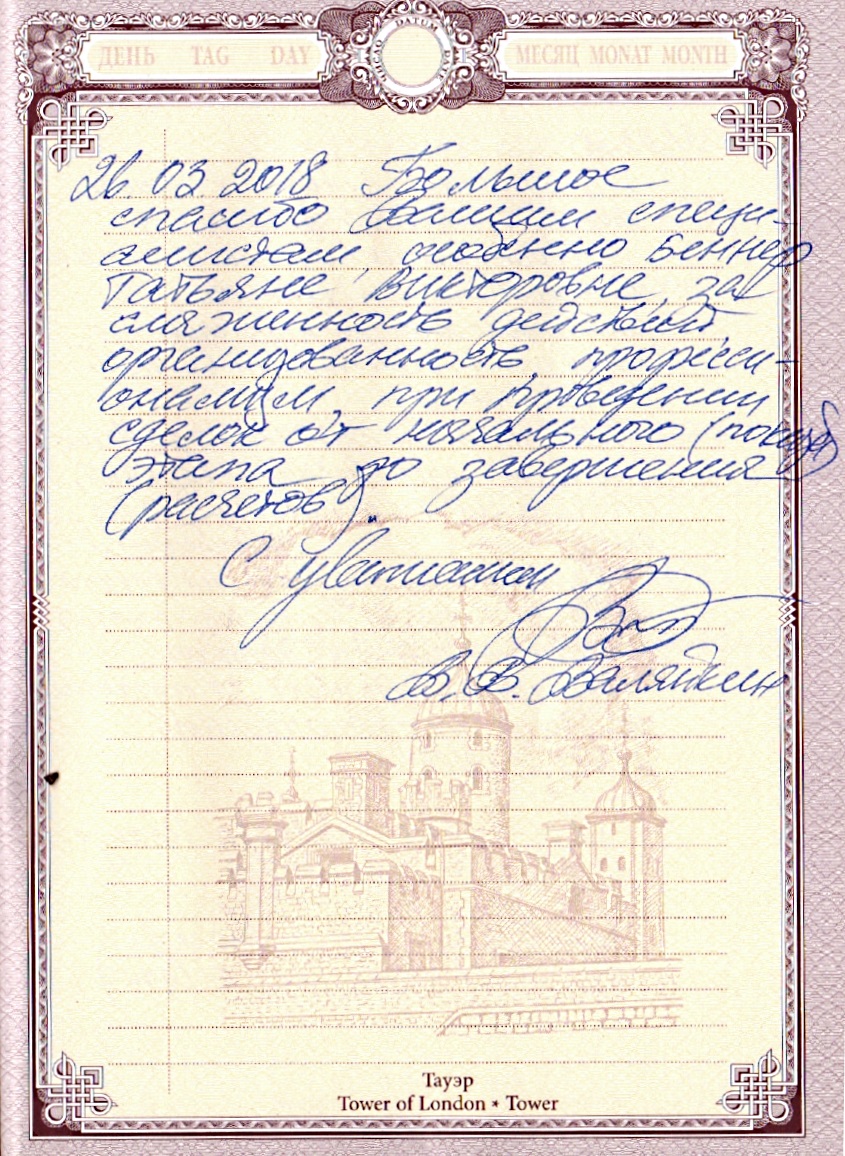 ДЕНЬ TAG DAY
ЧИСЛО DATUM DATE
МЕСЯЦ MONAT MONTH
26.03.2018 Большое
спасибо Вашим специ-
алистам, особенно Беннер
Татьяне Викторовне, за
слаженность действий,
организованность, професси-
онализм, при проведении
сделок от начального (показов)
этапа до завершения
(расчетов).
С уважением
В. В. Валядкин
Тауэр
Tower of London * Tower